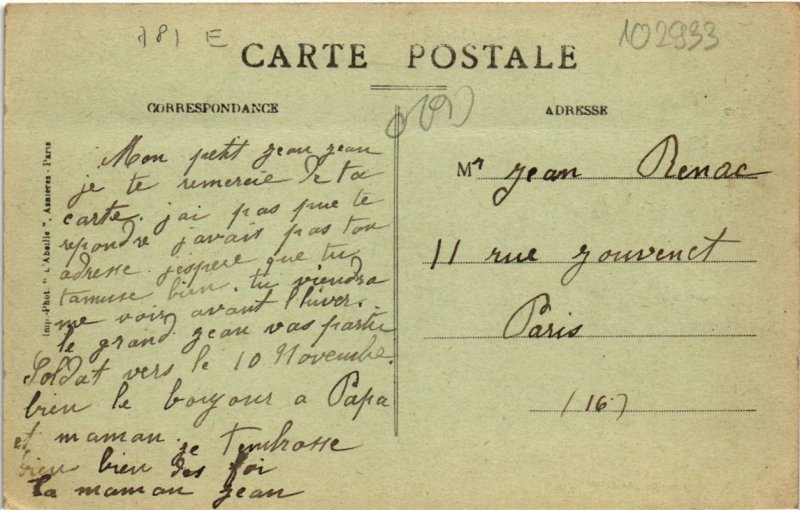 781 E
102933
CARTE POSTALE
CORRESPONDANCE
ADRESSE
Imp.-Phot. "L'Abeille", Asnières-Paris
Mon petit jean jean
je te remercie de ta
carte. jai pas pue te
repondre javais pas ton
adresse. jespere que tu
tamuse bien. tu viendra
me voir avant l'hiver.
le grand jean vas partir
Soldat vers le 10 Novembre.
bien le bonjour a Papa
et maman.
je tembrasse
bien bien des foi
la maman jean
Mr jean Renac
11 rue jouvenet
Paris
(16)